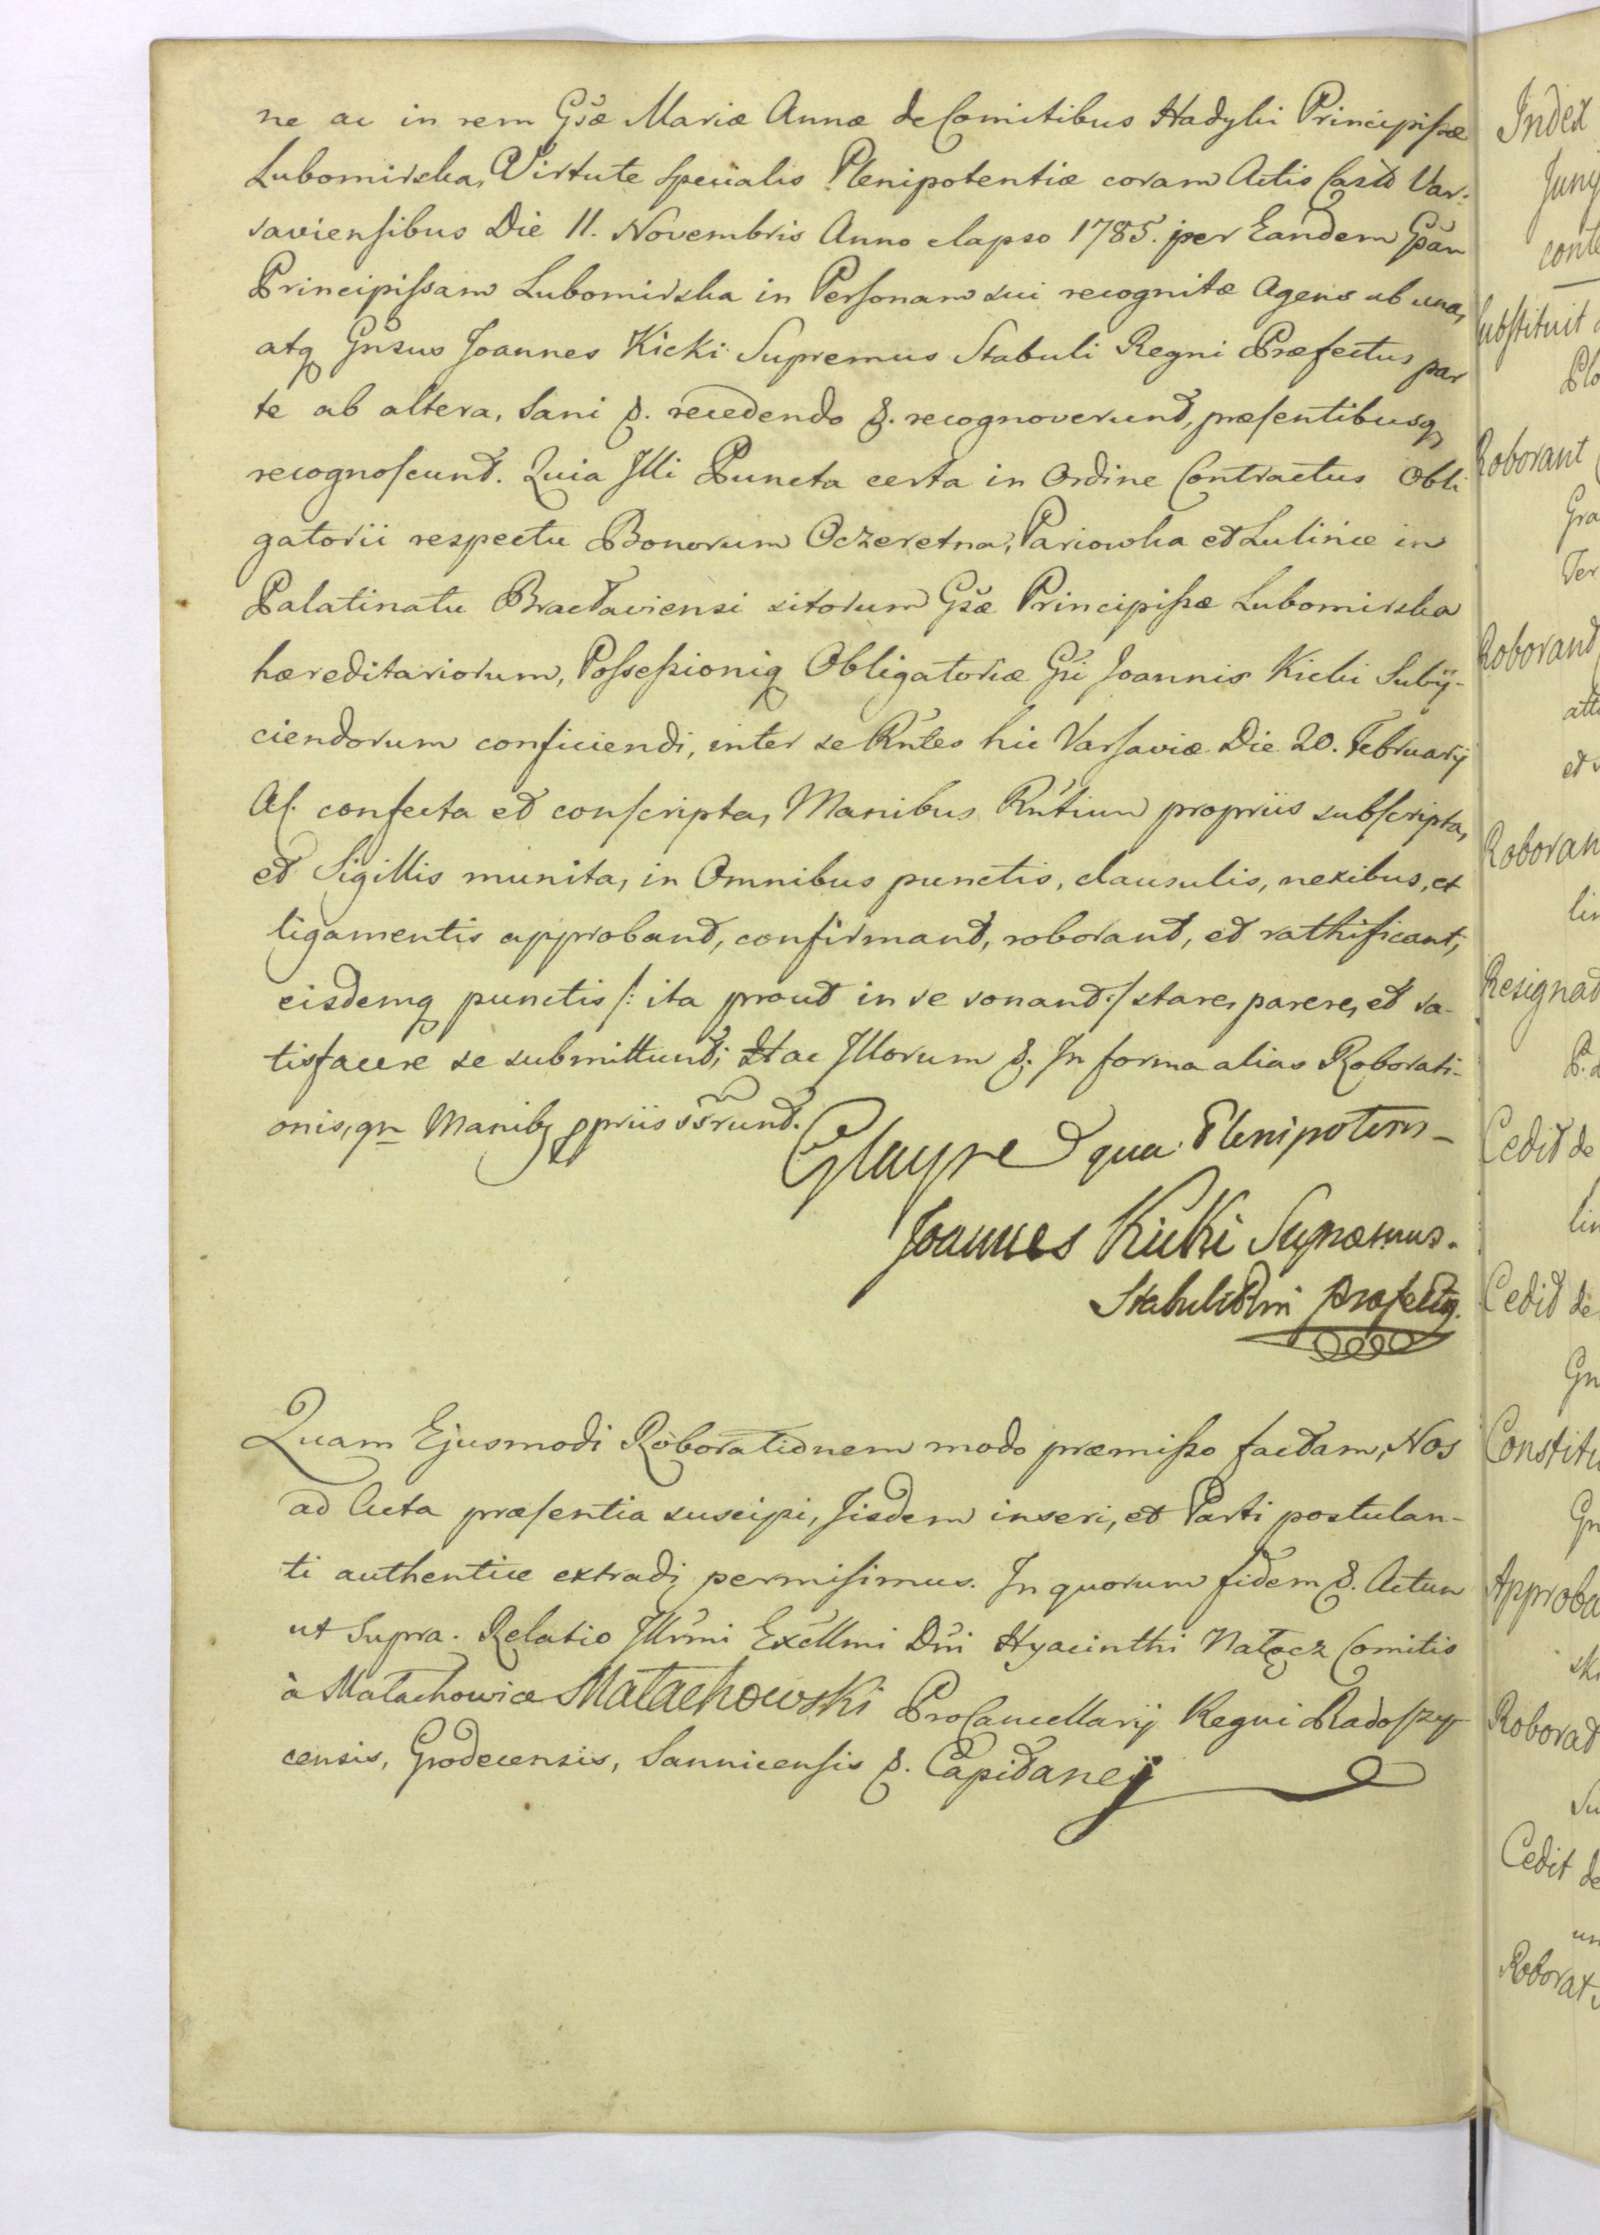 ne ac in rem Gsæ Mariæ Annæ de Comitibus Hadyki Principissæ
Lubomirska, Virtute specialis Plenipotentiæ coram Actis Castr Var-
saviensibus Die 11. Novembris Anno elapso 1785. per Eandem Gsam
Principissam Lubomirska in Personam sui recognitæ Agens ab una,
atq Gnsus Joannes Kicki Supremus Stabuli Regni Præfectus par
te ab altera, Sani &. recedendo &. recognoverunt, præsentibusq
recognoscunt. Quia Illi Puncta certa in Ordine Contractus Obli
gatorii respectu Bonorum Oczeretna, Pariowka et Lulince in
Palatinatu Bractaviensi sitorum Gsæ Principissæ Lubomirska
hæreditariorum, Possessioniq Obligatoriæ Gsi Joannis Kicki Subij-
ciendorum conficiendi, inter se Rntes hic Varsaviæ Die 20. Februarij
Af. confecta et conscripta, Manibus Rntium propriis subscripta,
et Sigillis munita, in Omnibus punctis, clausulis, nexibus, et
ligamentis approbant, confirmant, roborant, et rathificant,
eisdemq punctis /: ita prout in se sonant :/ stare, parere, et sa-
tisfacere se submittunt; Hac Illorum &. In forma alias Roborati-
onis, qn Manibq ppriis ssrunt.
Glayre qua Plenipotens
Joannes Kicki Supræmus.
Stabuli Rni Præfectq.
Quam Ejusmodi Roborationem modo præmisso factam, Nos
ad Acta præsentia suscipi, Iisdem inseri, et Parti postulan-
ti authentice extradi permisimus. In quorum fidem &. Actum
ut Supra. Relatio Illrmi Excellmi Dni Hyacinthi Nałęcz Comitis
à Małachowice Małachowski ProCancellarij Regni Radoszy-
censis, Grodecensis, Sannicensis &. Capitanej
Index
Juny
conte
Substituit
Plo
Roborant
Gra
Ter
Roborant
atti
et
Roboran
lin
Resignat
Cedit de
lin
Cedit de
Gn
Constitu
Gn
Approba
ski
Roborat
Su
Cedit de
un
Roborat